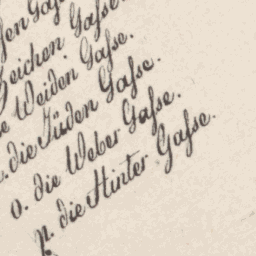 Gasse
eichen Gasse
Weiden Gasse.
. die Jüden Gasse.
o. die Weber Gasse.
p. die Hinter Gasse.